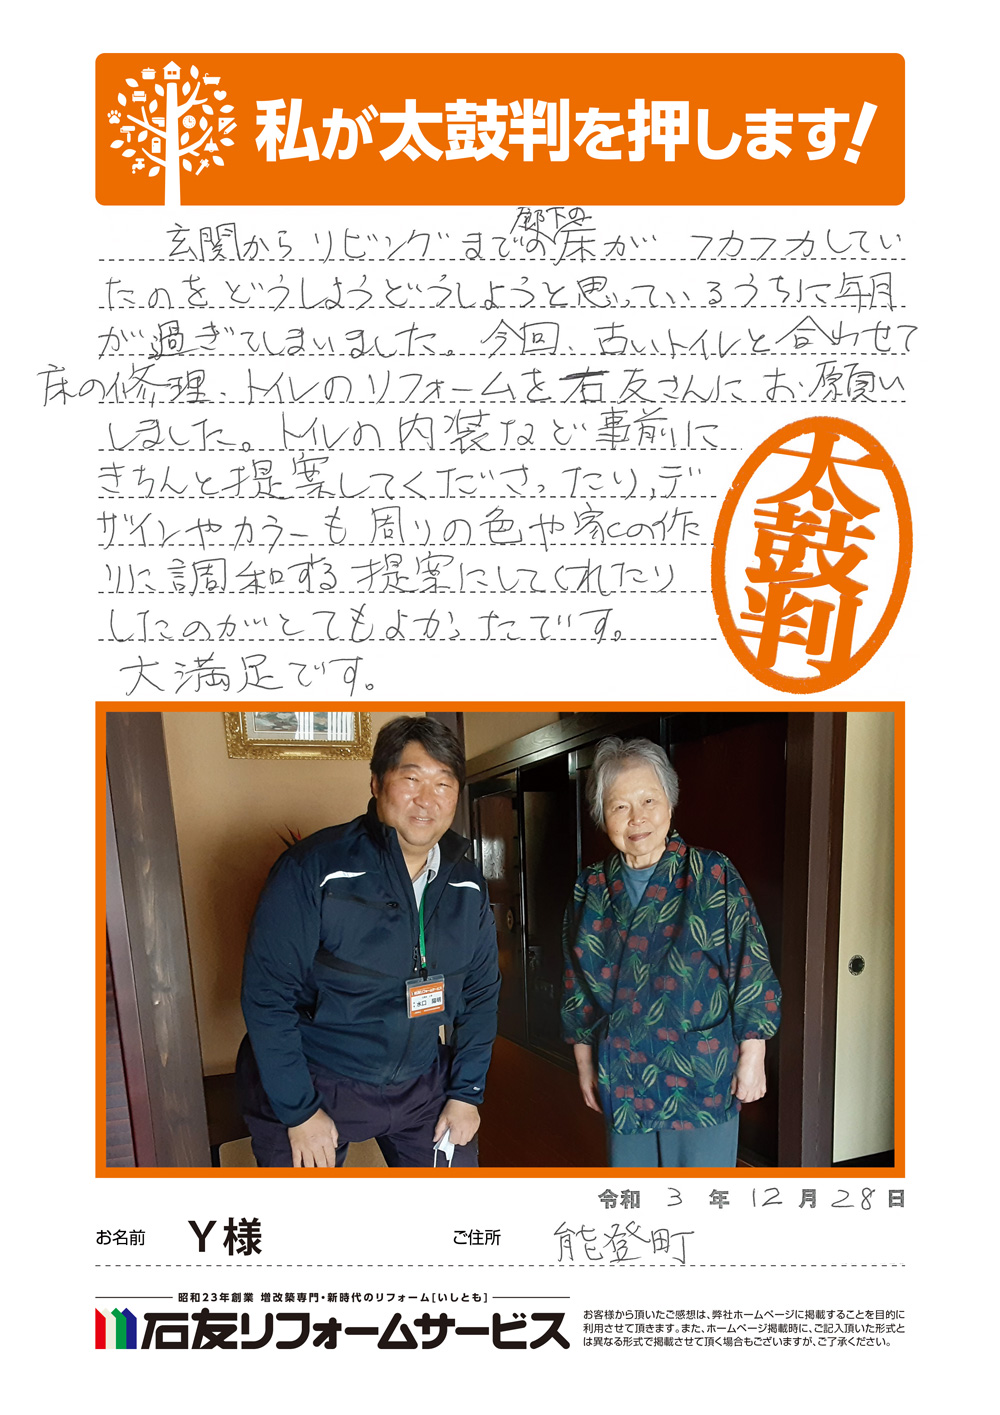 私が太鼓判を押します!
玄関からリビングまでの廊下の床が フカフカしてい
たのをどうしようどうしようと思っているうちに年月
が過ぎてしまいました。今回、古いトイレと合わせて
床の修理、トイレのリフォームを石友さんにお願い
しました。トイレの内装など事前に
きちんと提案してくださったり、デ
ザインやカラーも周りの色や家の作
りに調和する提案にしてくれたり
したのがとてもよかったです。
大満足です。
太鼓判
水口
令和 3 年 12 月 28 日
お名前 Y様 ご住所 能登町
昭和23年創業 増改築専門・新時代のリフォーム[いしとも]
石友リフォームサービス
お客様から頂いたご感想は、弊社ホームページに掲載することを目的に
利用させて頂きます。また、ホームページ掲載時に、ご記入頂いた形式と
は異なる形式で掲載させて頂く場合もございますが、ご了承ください。